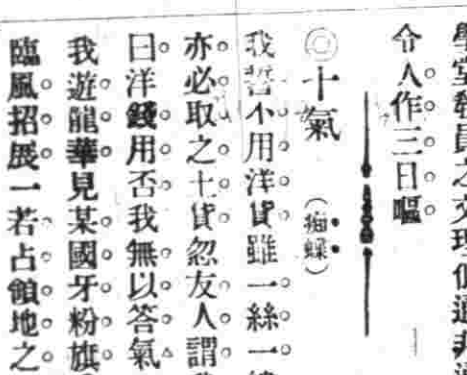 學堂敎員之文理但過非
令人作三日嘔
◎十氣 (痴蝶)
我誓不用洋貨雖一絲一縷
亦必取之土貨忽友人謂
曰洋錢用否我無以答氣
我遊龍華見某國牙粉旗
臨風招展一若占領地之